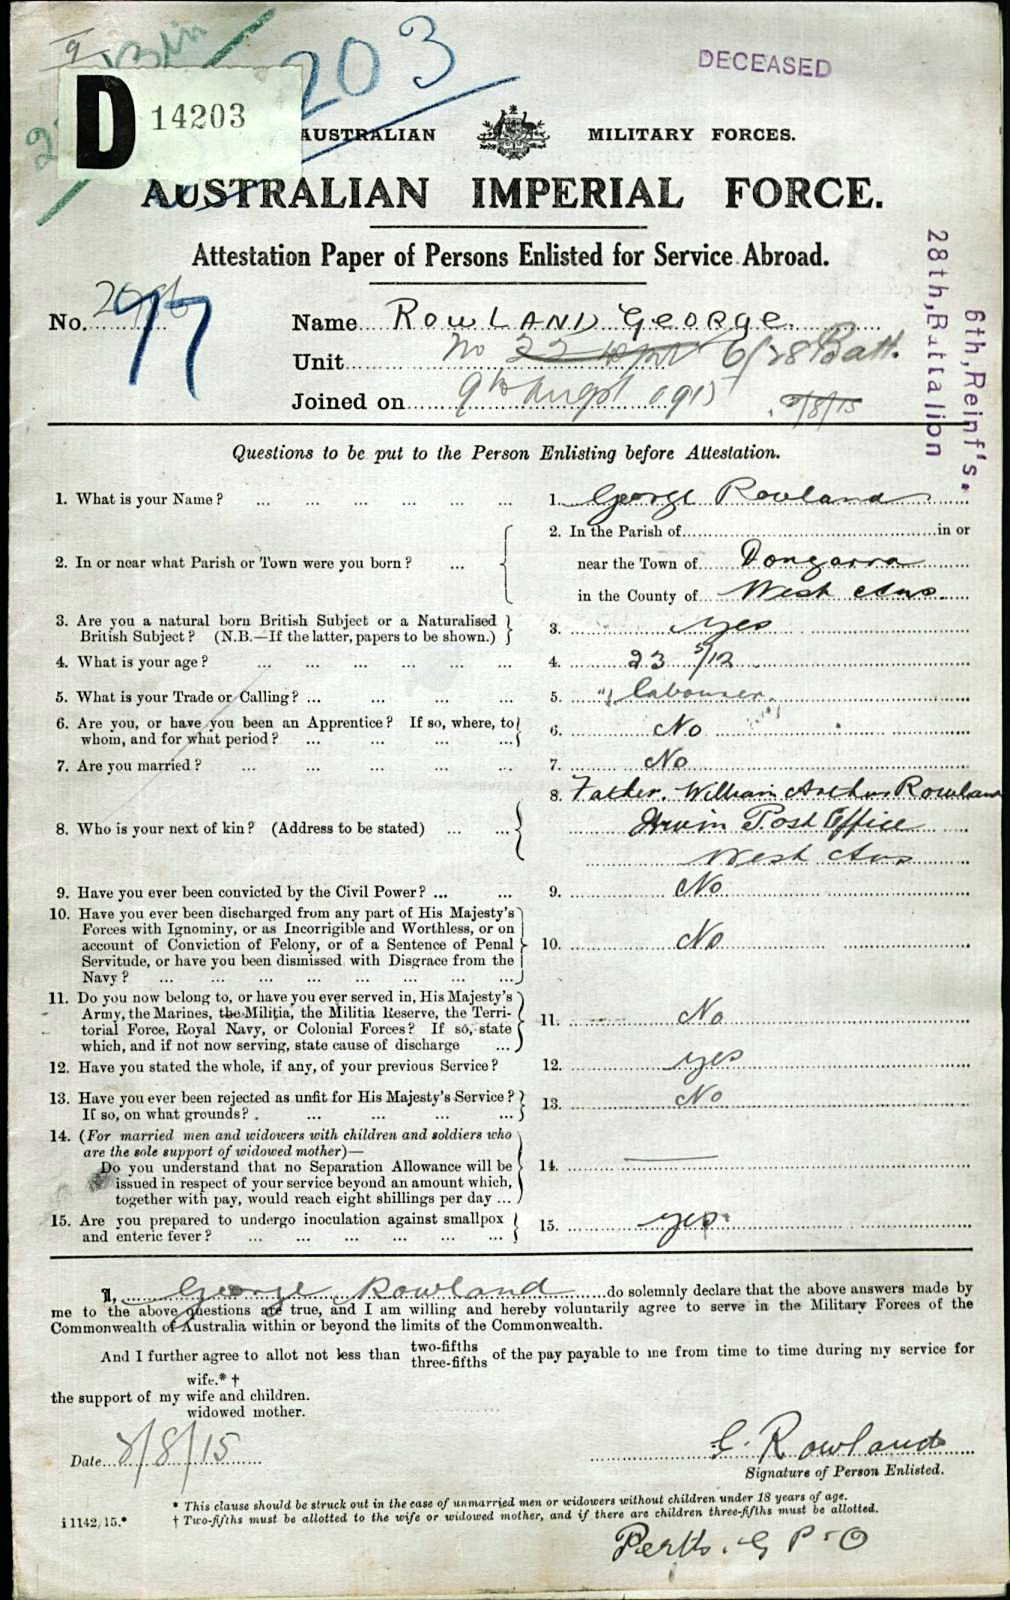 203
DECEASED
D 14203
AUSTRALIAN MILITARY FORCES.
AUSTRALIAN IMPERIAL FORCE.
Attestation Paper of Persons Enlisted for Service Abroad.
28th, Battalion
6th, Reinf's.
No. 77
Name ROWLAND GEORGE.
Unit No 22 Dpt 6/28 Batt.
Joined on 9th Augst 1915
Questions to be put to the Person Enlisting before Attestation.
1. What is your Name? ... ... ... ... ... 1. George Rowland
2. In or near what Parish or Town were you born? ... 2. In the Parish of in or
near the Town of Dongarra
in the County of West Aus.
3. Are you a natural born British Subject or a Naturalised
British Subject? (N.B.—If the latter, papers to be shown.) 3. yes
4. What is your age? ... ... ... ... ... 4. 23 5/12
5. What is your Trade or Calling? ... ... ... ... 5. labourer.
6. Are you, or have you been an Apprentice? If so, where, to
whom, and for what period? ... ... ... ... 6. No
7. Are you married? ... ... ... ... ... 7. No
8. Who is your next of kin? (Address to be stated) ... ... 8. Father. William Arthur Rowland
Irwin Post Office
West Aus
9. Have you ever been convicted by the Civil Power? ... ... 9. No
10. Have you ever been discharged from any part of His Majesty's
Forces with Ignominy, or as Incorrigible and Worthless, or on
account of Conviction of Felony, or of a Sentence of Penal
Servitude, or have you been dismissed with Disgrace from the
Navy? ... ... ... ... ... ... ... 10. No
11. Do you now belong to, or have you ever served in, His Majesty's
Army, the Marines, the Militia, the Militia Reserve, the Terri-
torial Force, Royal Navy, or Colonial Forces? If so, state
which, and if not now serving, state cause of discharge ... 11. No
12. Have you stated the whole, if any, of your previous Service? 12. yes
13. Have you ever been rejected as unfit for His Majesty's Service?
If so, on what grounds? ... ... ... ... 13. No
14. (For married men and widowers with children and soldiers who
are the sole support of widowed mother)—
Do you understand that no Separation Allowance will be
issued in respect of your service beyond an amount which,
together with pay, would reach eight shillings per day ... 14. —
15. Are you prepared to undergo inoculation against smallpox
and enteric fever? ... ... ... ... ... ... 15. yes
I, George Rowland do solemnly declare that the above answers made by
me to the above questions are true, and I am willing and hereby voluntarily agree to serve in the Military Forces of the
Commonwealth of Australia within or beyond the limits of the Commonwealth.
And I further agree to allot not less than two-fifths three-fifths of the pay payable to me from time to time during my service for
wife.* †
the support of my wife and children.
widowed mother.
Date 8/8/15 G. Rowland
Signature of Person Enlisted.
* This clause should be struck out in the case of unmarried men or widowers without children under 18 years of age.
i 1142/15.* † Two-fifths must be allotted to the wife or widowed mother, and if there are children three-fifths must be allotted.
Perth. G P O